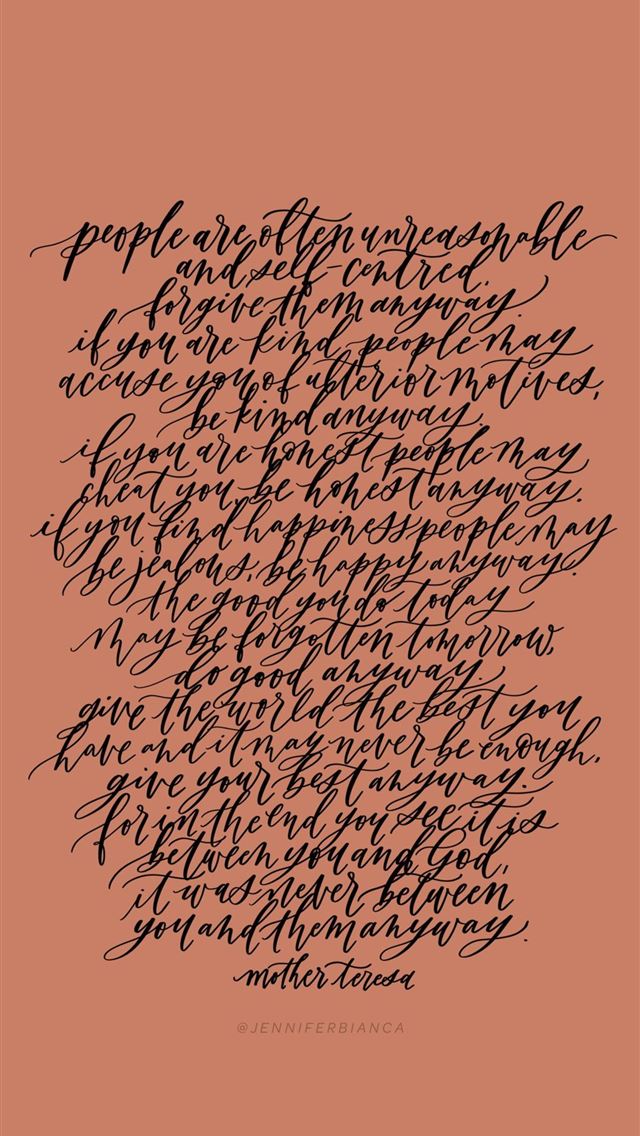 people are often unreasonable
and self-centred.
forgive them anyway.
if you are kind, people may
accuse you of ulterior motives,
be kind anyway.
if you are honest people may
cheat you, be honest anyway.
if you find happiness people may
be jealous, be happy anyway.
the good you do today
may be forgotten tomorrow,
do good anyway.
give the world the best you
have and it may never be enough.
give your best anyway.
for in the end you see it is
between you and God,
it was never between
you and them anyway.
mother teresa
@JENNIFERBIANCA